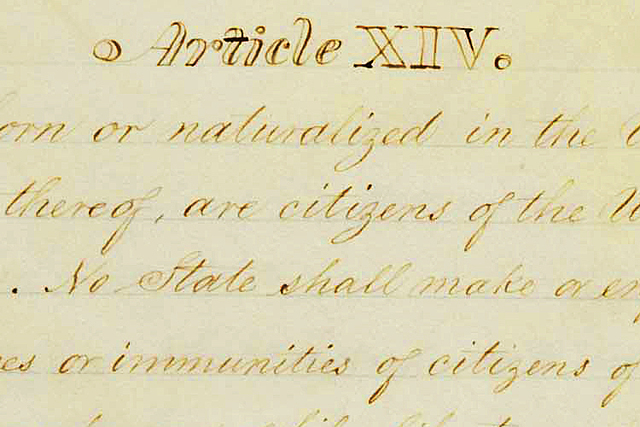 Article XIV.
orn or naturalized in the
thereof, are citizens of the
. No State shall make or en
es or immunities of citizens of